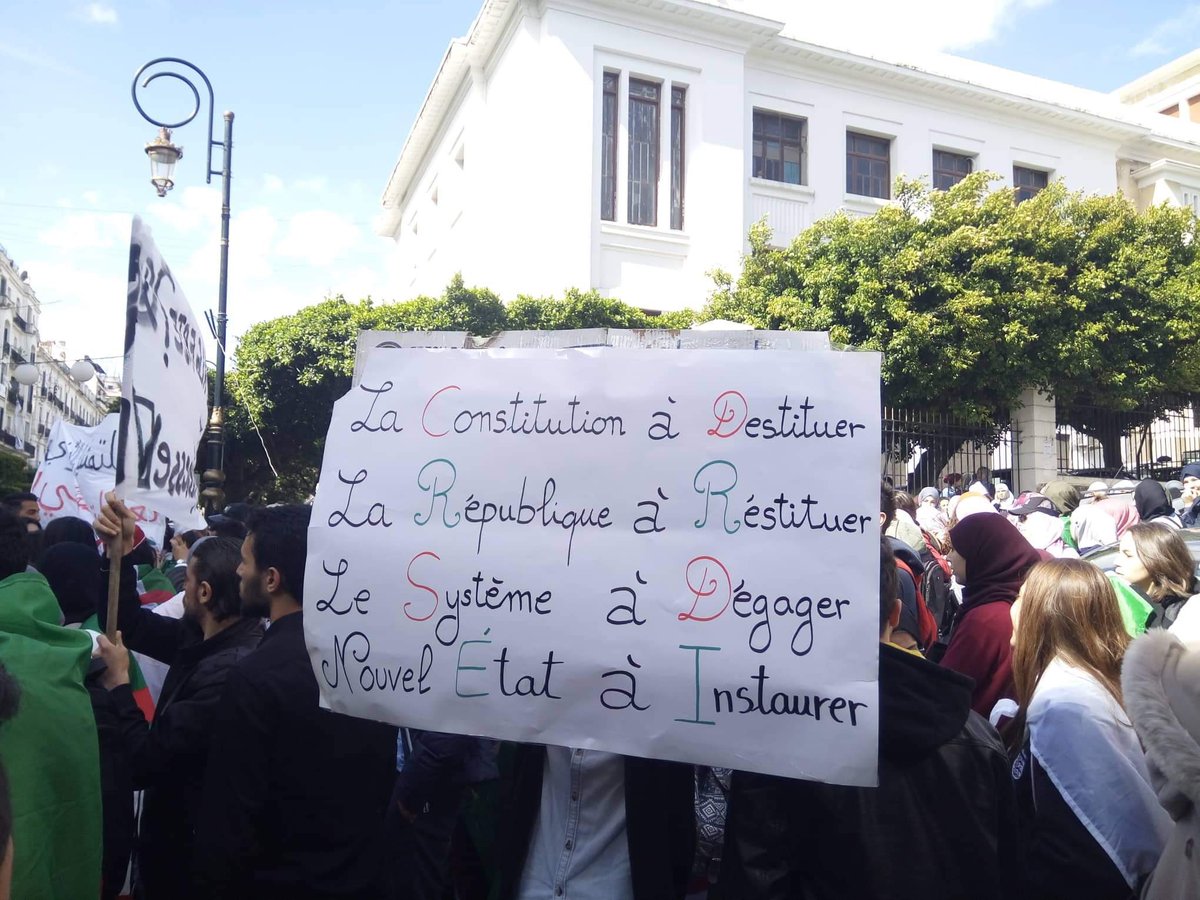 La Constitution à Destituer
La République à Réstituer
Le Système à Dégager
Nouvel État à Instaurer